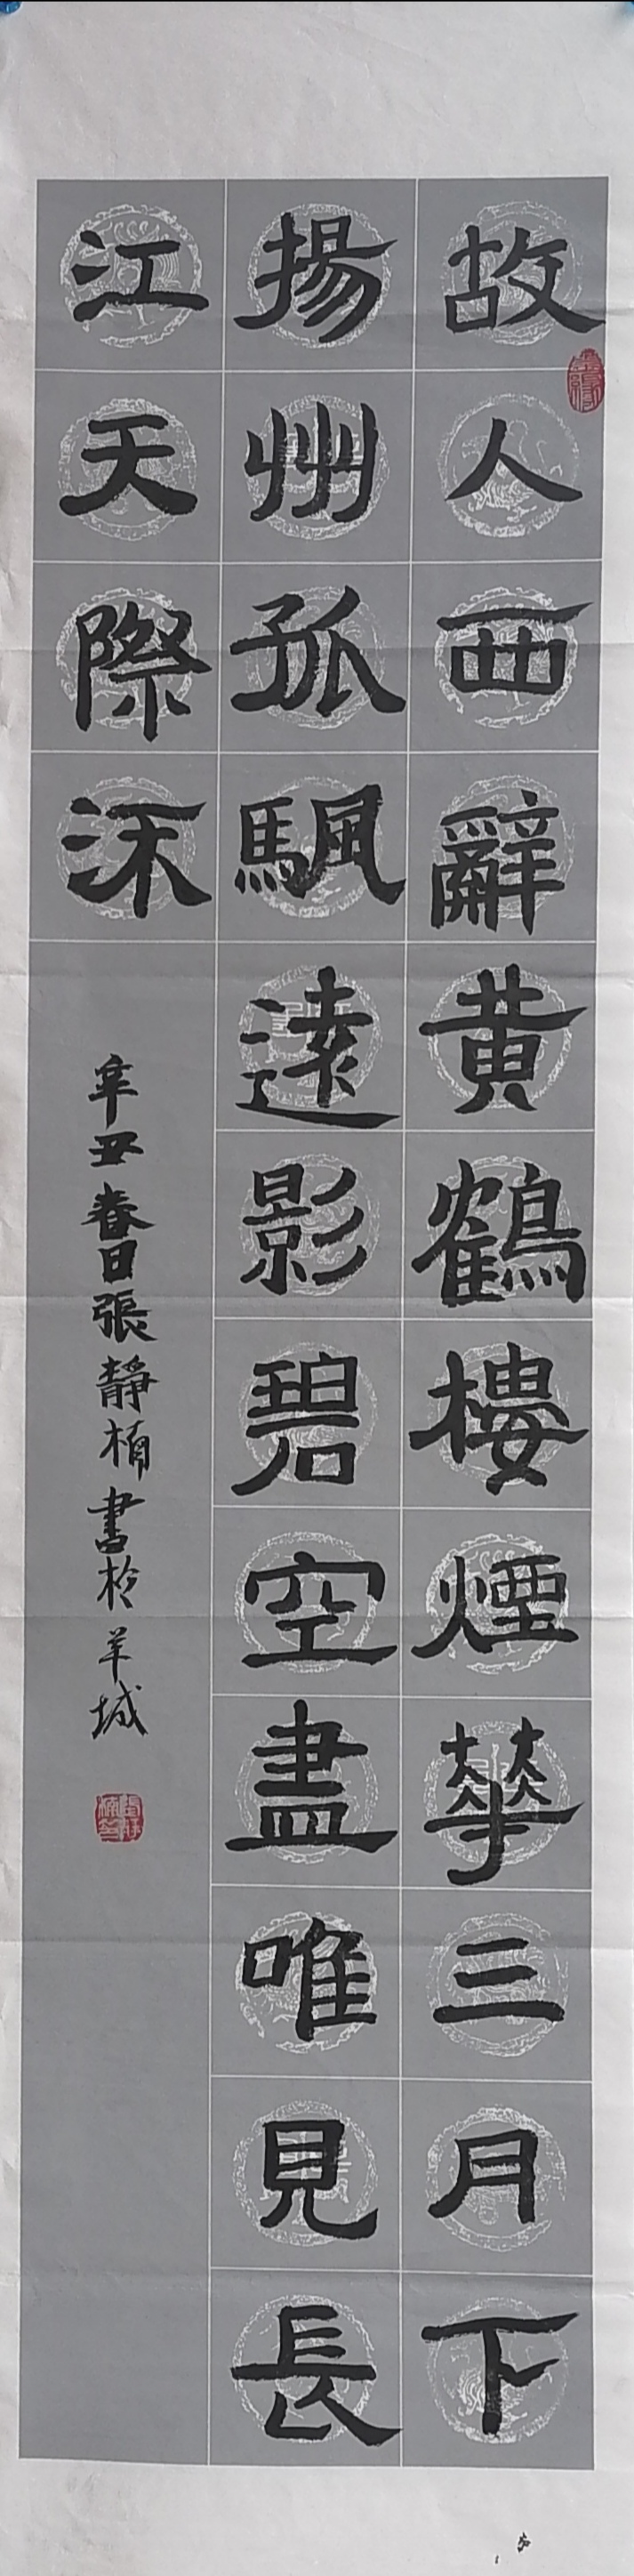 故人西辭黃鶴樓煙華三月下
揚州孤颿遠影碧空盡唯見長
江天際㳅
辛丑春日張靜書於羊城